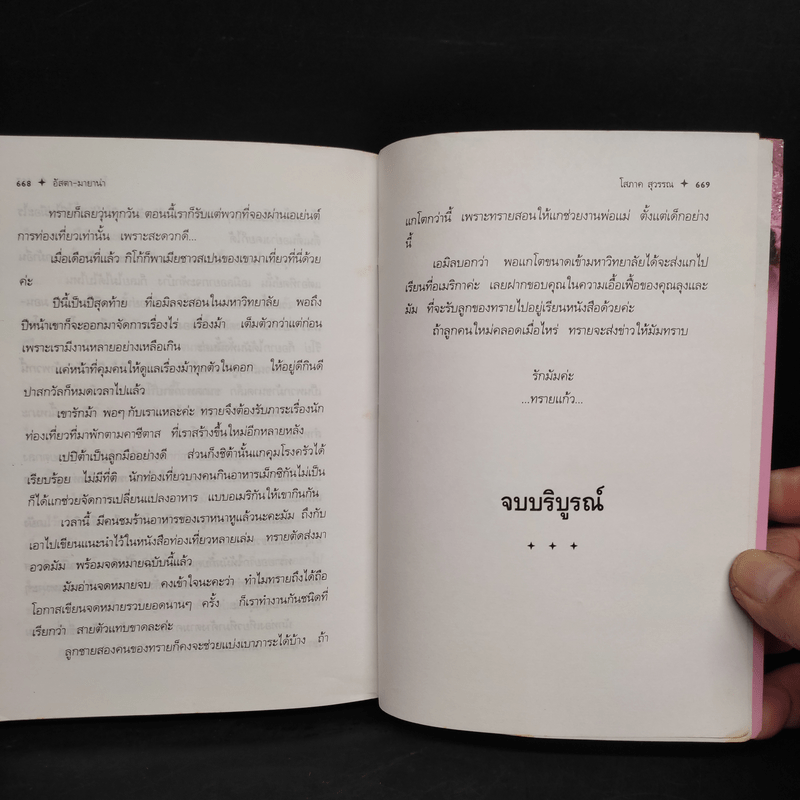 668 ✦ อัสตา-มายาน่า
ทรายก็เลยวุ่นทุกวัน ตอนนี้เราก็รับแต่พวกที่จองผ่านเอเย่นต์
การท่องเที่ยวเท่านั้น เพราะสะดวกดี...
เมื่อเดือนที่แล้ว กิโก้ก็พาเมียชาวสเปนของเขามาเที่ยวที่นี่ด้วย
ค่ะ
ปีนี้เป็นปีสุดท้าย ที่เอมิลจะสอนในมหาวิทยาลัย พอถึง
ปีหน้าเขาก็จะออกมาจัดการเรื่องไร่ เรื่องม้า เต็มตัวกว่าแต่ก่อน
เพราะเรามีงานหลายอย่างเหลือเกิน
แค่หน้าที่คุมคนให้ดูแลเรื่องม้าทุกตัวในคอก ให้อยู่ดีกินดี
ปาสกวัลก็หมดเวลาไปแล้ว
เขารักม้า พอๆ กับเราแหละค่ะ ทรายจึงต้องรับภาระเรื่องนัก
ท่องเที่ยวที่มาพักตามคาซีตาส ที่เราสร้างขึ้นใหม่อีกหลายหลัง
เปปิต้าเป็นลูกมืออย่างดี ส่วนกิ้งซิต้านั้นแกคุมโรงครัวได้
เรียบร้อย ไม่มีที่ติ นักท่องเที่ยวบางคนกินอาหารเม็กซิกันไม่เป็น
ก็ได้แกช่วยจัดการเปลี่ยนแปลงอาหาร แบบอเมริกันให้เขากินกัน
เวลานี้ มีคนชมร้านอาหารของเราหนาหูแล้วนะคะมัม ถึงกับ
เอาไปเขียนแนะนำไว้ในหนังสือท่องเที่ยวหลายเล่ม ทรายตัดส่งมา
อวดมัม พร้อมจดหมายฉบับนี้แล้ว
มัมอ่านจดหมายจบ คงเข้าใจนะคะว่า ทำไมทรายถึงได้ถือ
โอกาสเขียนจดหมายรวบยอดนานๆ ครั้ง ก็เราทำงานกันชนิดที่
เรียกว่า สายตัวแทบขาดละค่ะ
ลูกชายสองคนของทรายก็คงจะช่วยแบ่งเบาภาระได้บ้าง ถ้า
โสภาค สุวรรณ ✦ 669
แกโตกว่านี้ เพราะทรายสอนให้แกช่วยงานพ่อแม่ ตั้งแต่เด็กอย่าง
นี้
เอมิลบอกว่า พอแกโตขนาดเข้ามหาวิทยาลัยได้จะส่งแกไป
เรียนที่อเมริกาค่ะ เลยฝากขอบคุณในความเอื้อเฟื้อของคุณลุงและ
มัม ที่จะรับลูกของทรายไปอยู่เรียนหนังสือด้วยค่ะ
ถ้าลูกคนใหม่คลอดเมื่อไหร่ ทรายจะส่งข่าวให้มัมทราบ
รักมัมค่ะ
...ทรายแก้ว...
จบบริบูรณ์
✦ ✦ ✦